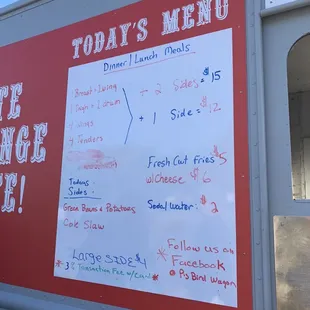 TODAY'S MENU
Dinner / Lunch Meals
1 Breast + 1 Wing
1 Thigh + 1 Drum
4 Wings
4 Tenders
+ 2 Sides $15
+ 1 Side = $12
Todays
Sides:
Green Beans & Potatoes
Cole Slaw
Fresh Cut Fries $5
w/cheese $6
Soda/Water: $2
Large SIDE $4
* 3% Transaction Fee w/card *
*Follow us on
Facebook
@ PJs Bird Wagon
NGE
E!